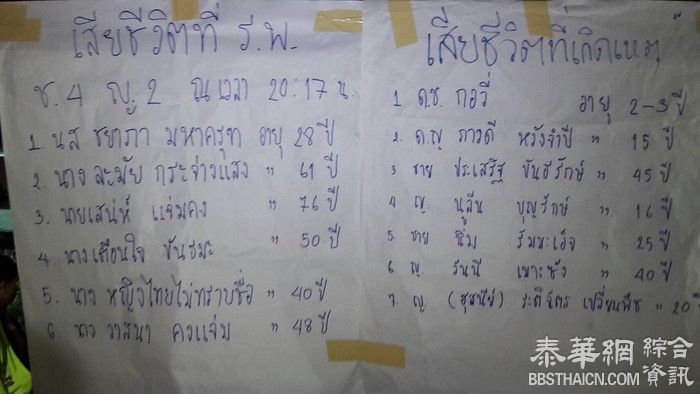 เสียชีวิตที่ ร.พ.
ช. 4 ญ. 2 ณ เวลา 20:17 น.
1. นส ชยาภา มหาครุฑ อายุ 28 ปี
2. นาง ละมัย กระจ่างแสง " 61 ปี
3. นายเสน่ห์ แจ่มคง " 76 ปี
4. นางเตือนใจ ขันธมะ " 50 ปี
5. นาง หญิงไทยไม่ทราบชื่อ " 40 ปี
6. นาง วาสนา คงแจ่ม " 48 ปี
เสียชีวิตที่เกิดเหตุ
1. ด.ช. กอวี่ อายุ 2-3 ปี
2. ด.ญ ภาวดี หวังจำปี " 15 ปี
3 ชาย ประเสริฐ ขันธ์รักษ์ " 45 ปี
4 ญ. นูลีน บุญรักษ์ " 16 ปี
5. ชาย นิ่ม " 25 ปี
6. ญ. รันนี " 40 ปี
7. ญ (ชุมนีย์) เปลี่ยนพืช " 20 ปี
泰華網 綜合資訊
BBSTHAICN.COM